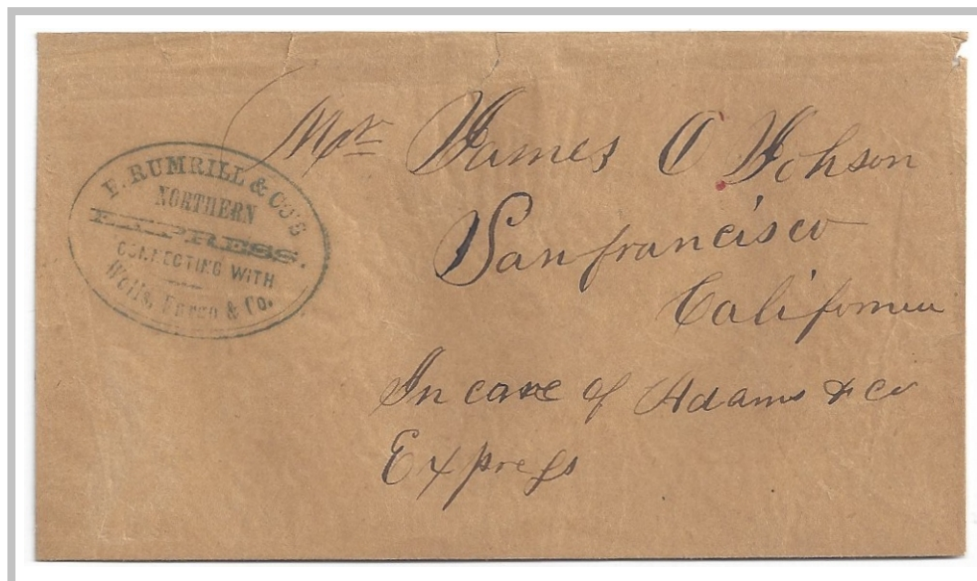 F. RUMRILL & CO'S
NORTHERN
EXPRESS.
CONNECTING WITH
Wells, Fargo & Co.
Mr James O Johson
Sanfrancisco
California
In care of Adams & Co
Express